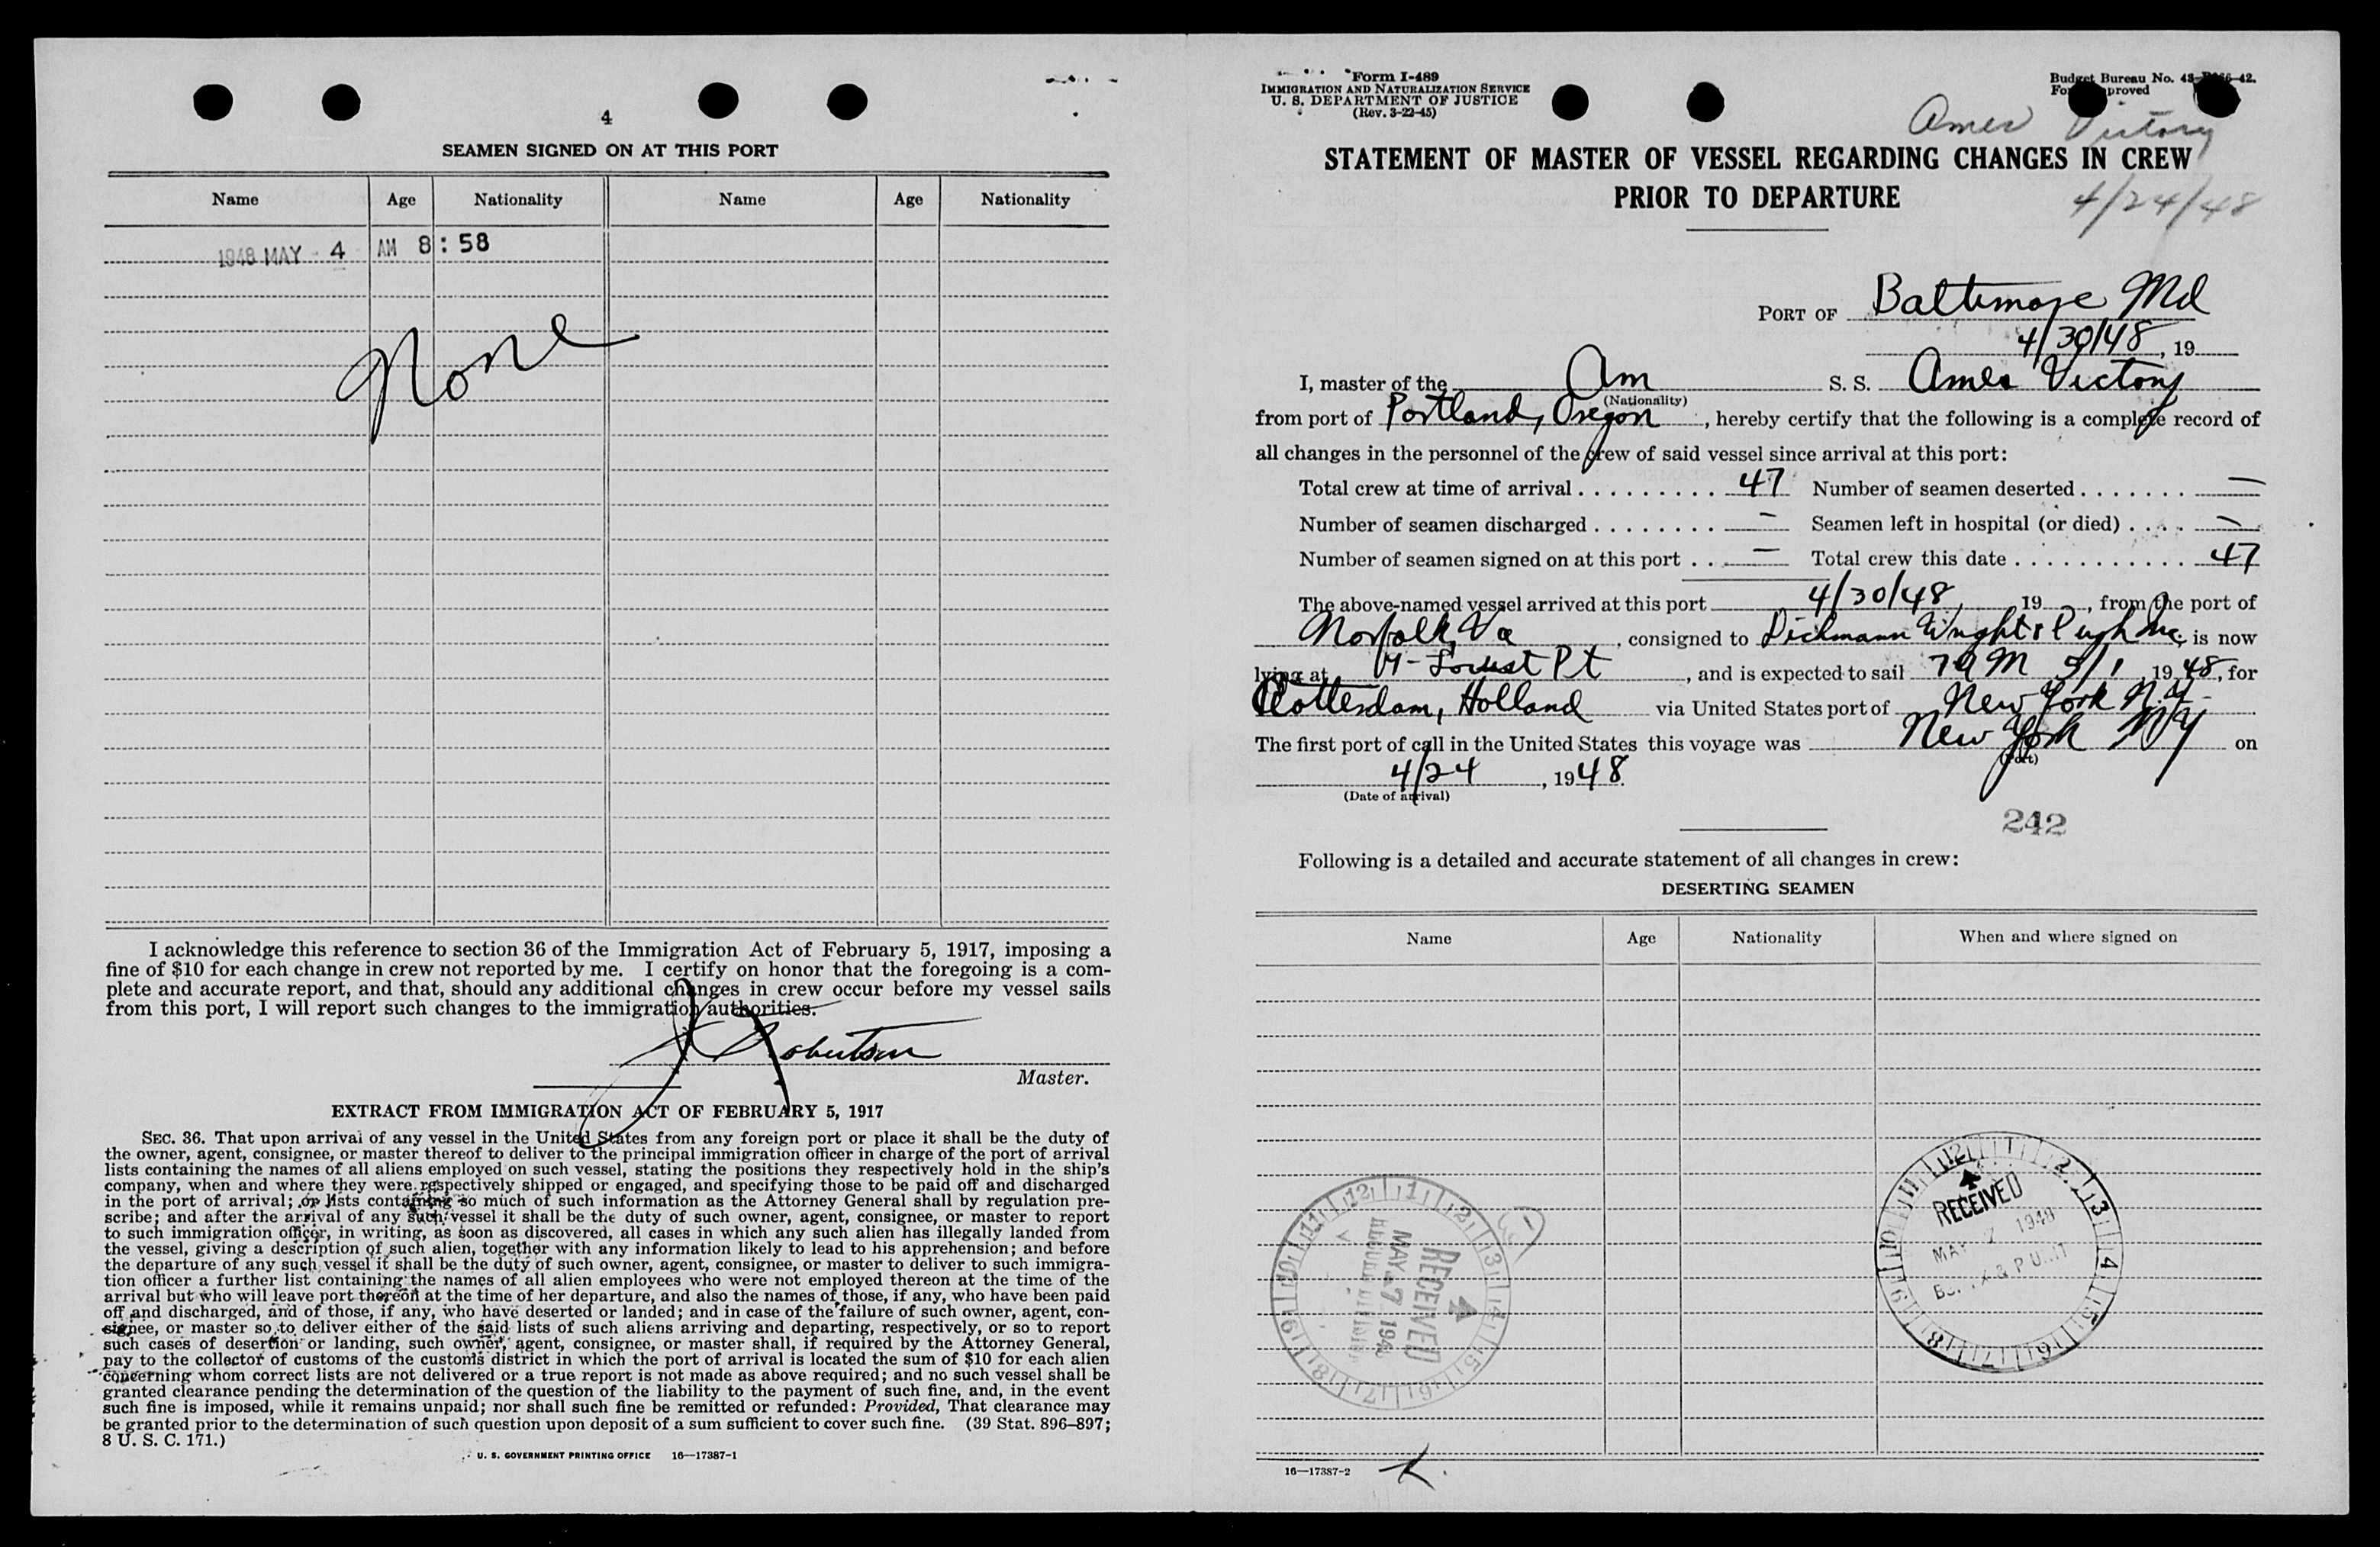 4
SEAMEN SIGNED ON AT THIS PORT
Name Age Nationality Name Age Nationality
1948 MAY - 4 AM 8:58
None
I acknowledge this reference to section 36 of the Immigration Act of February 5, 1917, imposing a
fine of $10 for each change in crew not reported by me. I certify on honor that the foregoing is a com-
plete and accurate report, and that, should any additional changes in crew occur before my vessel sails
from this port, I will report such changes to the immigration authorities.
Robertson
Master.
EXTRACT FROM IMMIGRATION ACT OF FEBRUARY 5, 1917
SEC. 36. That upon arrival of any vessel in the United States from any foreign port or place it shall be the duty of
the owner, agent, consignee, or master thereof to deliver to the principal immigration officer in charge of the port of arrival
lists containing the names of all aliens employed on such vessel, stating the positions they respectively hold in the ship's
company, when and where they were respectively shipped or engaged, and specifying those to be paid off and discharged
in the port of arrival; or lists containing so much of such information as the Attorney General shall by regulation pre-
scribe; and after the arrival of any such vessel it shall be the duty of such owner, agent, consignee, or master to report
to such immigration officer, in writing, as soon as discovered, all cases in which any such alien has illegally landed from
the vessel, giving a description of such alien, together with any information likely to lead to his apprehension; and before
the departure of any such vessel it shall be the duty of such owner, agent, consignee, or master to deliver to such immigra-
tion officer a further list containing the names of all alien employees who were not employed thereon at the time of the
arrival but who will leave port thereon at the time of her departure, and also the names of those, if any, who have been paid
off and discharged, and of those, if any, who have deserted or landed; and in case of the failure of such owner, agent, con-
signee, or master so to deliver either of the said lists of such aliens arriving and departing, respectively, or so to report
such cases of desertion or landing, such owner, agent, consignee, or master shall, if required by the Attorney General,
pay to the collector of customs of the customs district in which the port of arrival is located the sum of $10 for each alien
concerning whom correct lists are not delivered or a true report is not made as above required; and no such vessel shall be
granted clearance pending the determination of the question of the liability to the payment of such fine, and, in the event
such fine is imposed, while it remains unpaid; nor shall such fine be remitted or refunded: Provided, That clearance may
be granted prior to the determination of such question upon deposit of a sum sufficient to cover such fine. (39 Stat. 896–897;
8 U. S. C. 171.)
U. S. GOVERNMENT PRINTING OFFICE 16—17387-1
Form I-489
IMMIGRATION AND NATURALIZATION SERVICE
U. S. DEPARTMENT OF JUSTICE
(Rev. 3-22-45)
Budget Bureau No.
Ames Victory
STATEMENT OF MASTER OF VESSEL REGARDING CHANGES IN CREW
PRIOR TO DEPARTURE
4/24/48
PORT OF Baltimore Md
4/30/48, 19
I, master of the Am S. S. Ames Victory
(Nationality)
from port of Portland, Oregon, hereby certify that the following is a complete record of
all changes in the personnel of the crew of said vessel since arrival at this port:
Total crew at time of arrival . . . . . . . . . 47 Number of seamen deserted . . . . . . . —
Number of seamen discharged . . . . . . . . — Seamen left in hospital (or died) . . . . —
Number of seamen signed on at this port . . — Total crew this date . . . . . . . . . . . 47
The above-named vessel arrived at this port 4/30/48, 19, from the port of
Norfolk, Va, consigned to Dichmann Wright & Pugh Inc, is now
lying at Locust Pt, and is expected to sail 7 AM 5/1, 1948, for
Rotterdam, Holland via United States port of New York N.Y.
The first port of call in the United States this voyage was New York NY on
(Port)
4/24, 1948.
(Date of arrival)
242
Following is a detailed and accurate statement of all changes in crew:
DESERTING SEAMEN
Name Age Nationality When and where signed on
12 1 2 3 4 5 6 7 8 9 10 11
RECEIVED
MAY 7 1948
12 1 2 3 4 5 6 7 8 9 10 11
RECEIVED
MAY 7 1948
16—17387-2